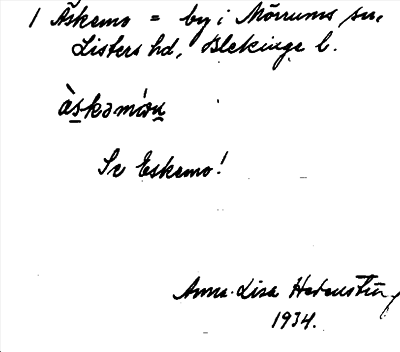 1 Äskemo = by i Mörrums sn,
Listers hd, Blekinge l.
Se Eskemo!
Anna-Lisa Hedenstin
1934.